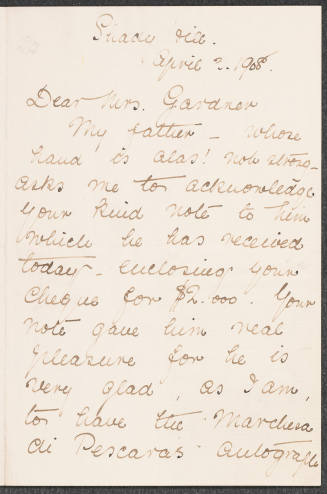 Shady Hill.
April 2. 1908.
Dear Mrs. Gardner
My father - whose
hand is alas! not strong -
asks me to acknowledge
your kind note to him
which he has received
today - enclosing your
cheque for $2.000. Your
note gave him real
pleasure for he is
very glad, as I am,
to have the Marchesa
di Pescara's autograph